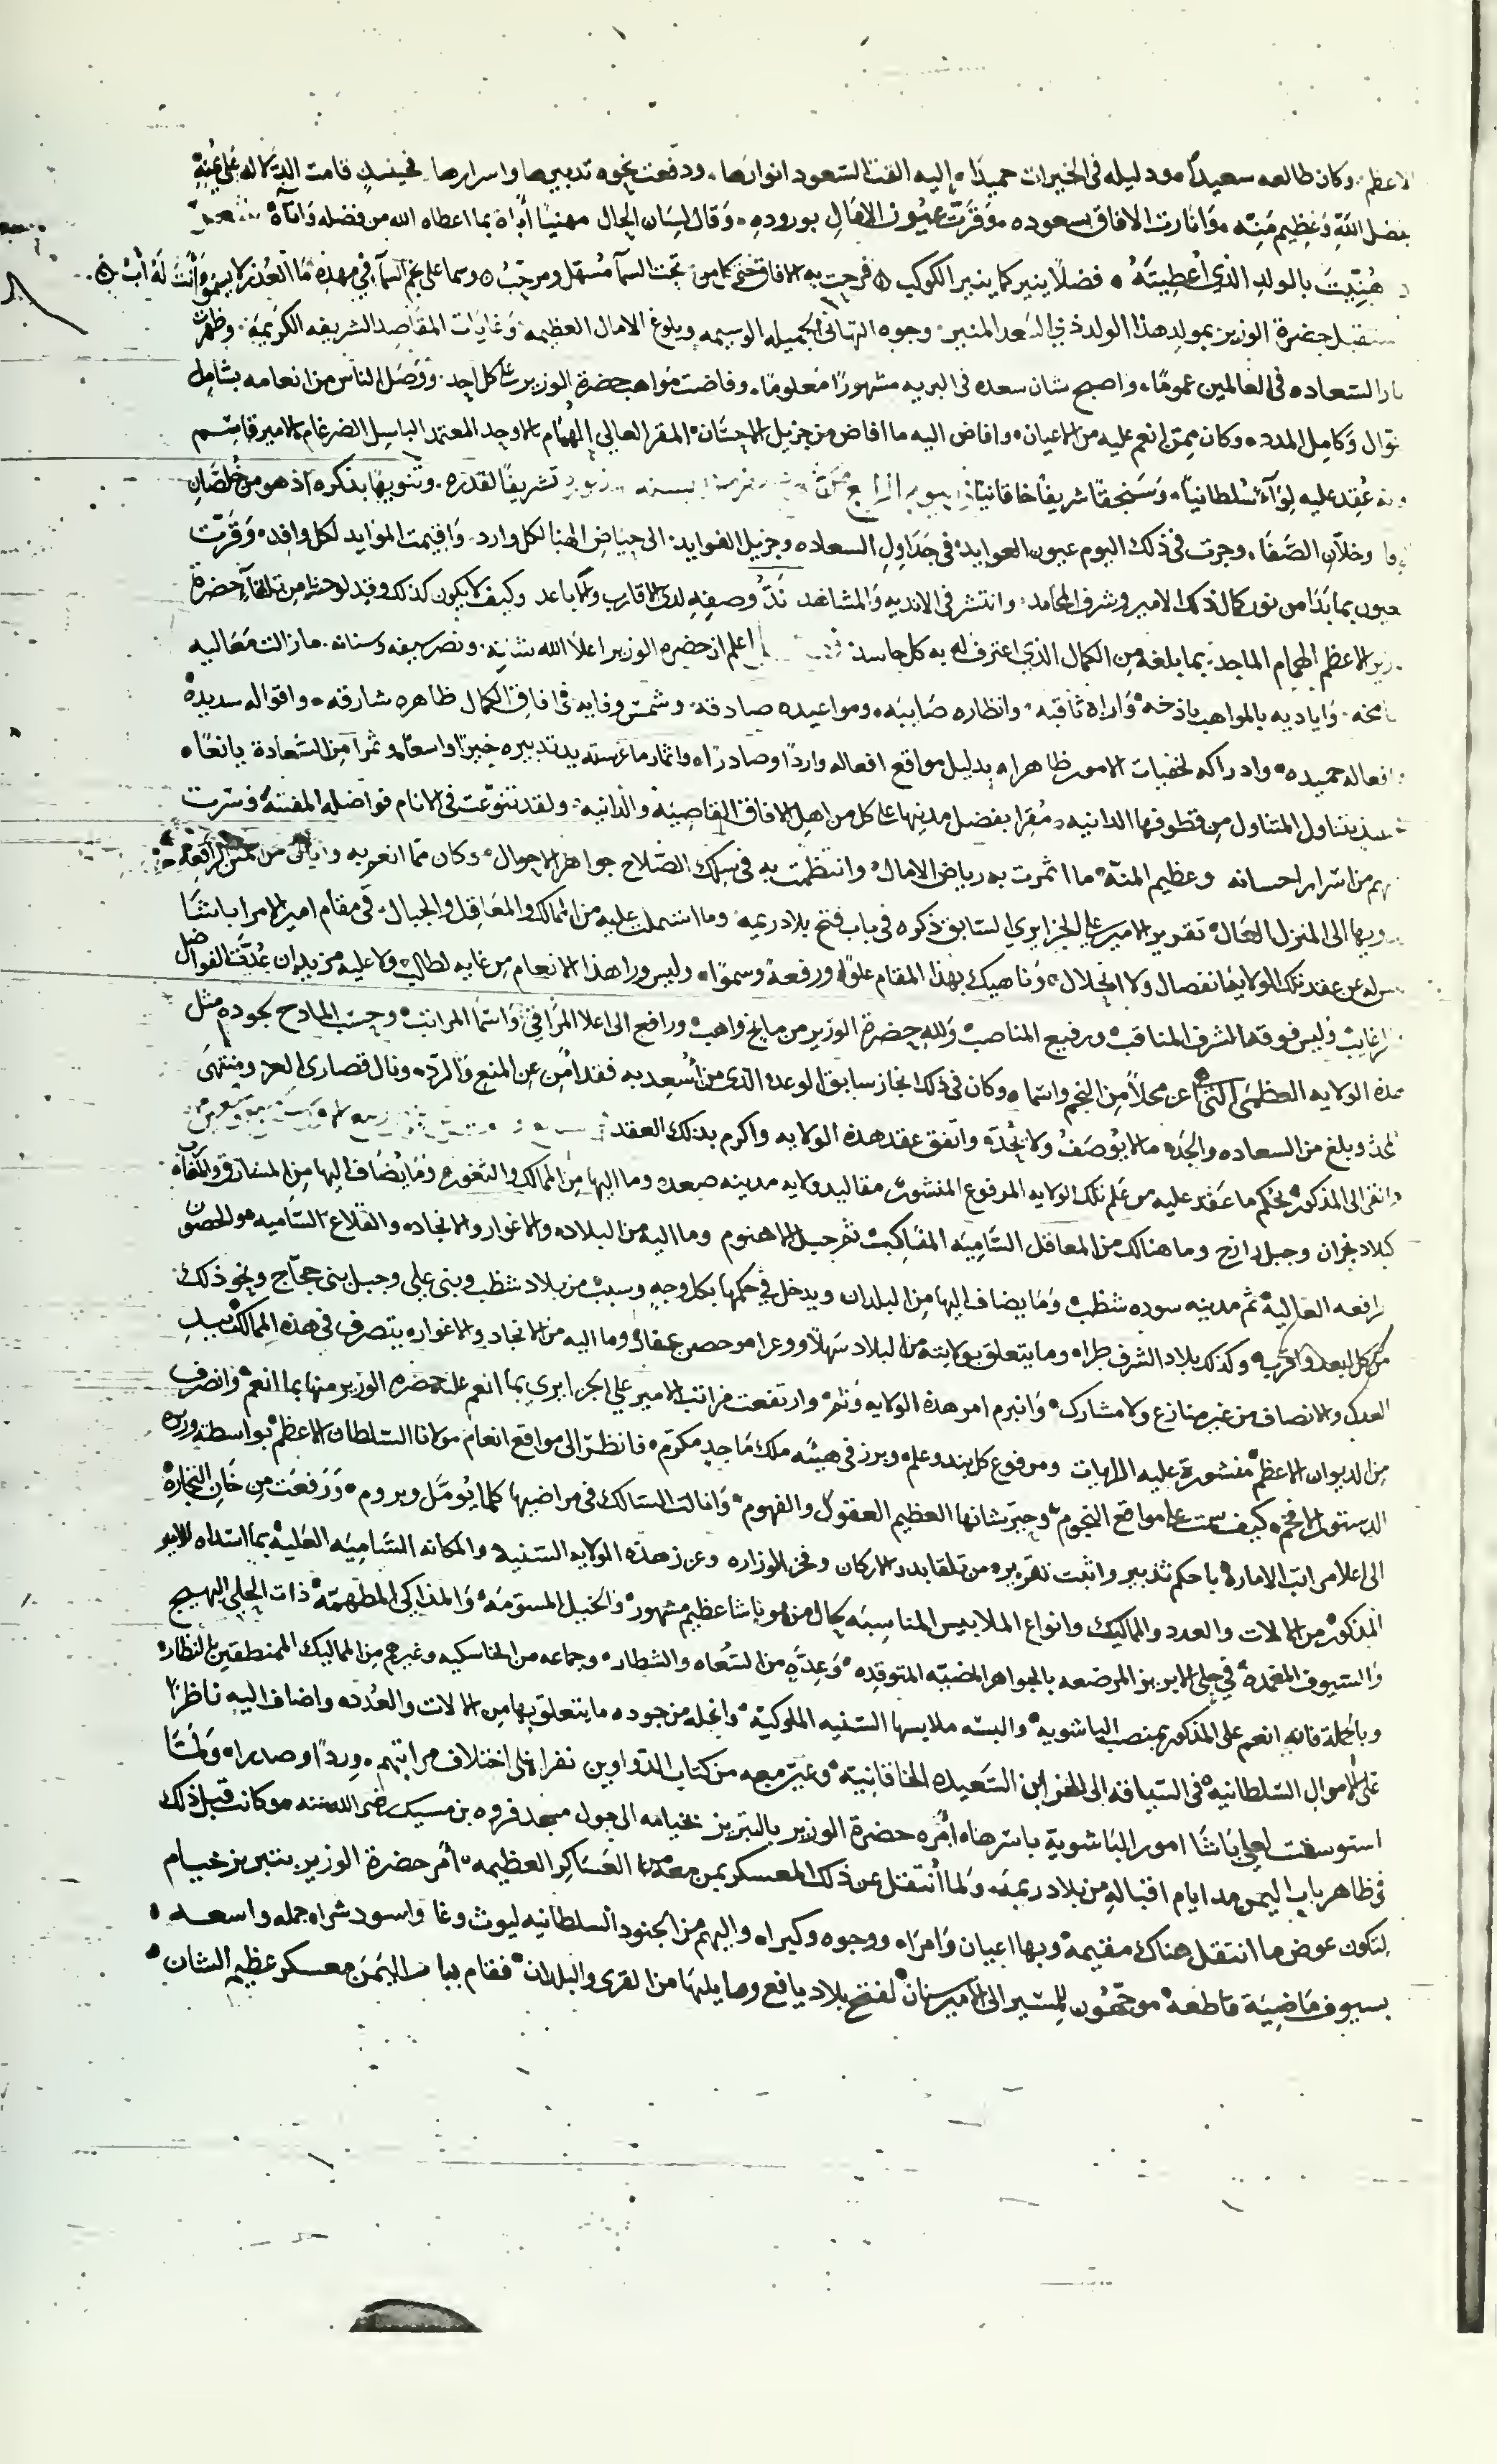 الاعظم . وكان طالعه سعيدًا ودليله في الخيرات حميدًا ، إليه القت السعود انوارها . ودفعت نحوه تدبيرها واسرارها
بفضل اللّه وعظيم منّه ، وانارت الافاق بسعوده ، وقرّت عيون الامال بوروده ، وقال لسان الحال مهنيًا أباه بما اعطاه الله من فضله واتاه
هُنّيت بالولد الذي اُعطيته فضلًا ينير كما ينير الكوكب فرحت به الافاق
حضرة الوزير بمولد هذا الولد ذي السعد المنير . وجوه التهاني الجميله الوسيمه وبلوغ الامال العظيمه . وغايات المقاصد الشريفه الكريمة . وظهرت
السعاده في العالمين عمومًا . واصبح شان سعده في البريه مشهورًا معلومًا . وفاضت مواهب حضرة الوزير على كل احد . ووصل الناس من انعامه بشامل
نوال وكامل المدد ، وكان ممن انعم عليه من الاعيان ، وافاض اليه ما افاض من جزيل الاحسان . المقر العالي الهمام الاوحد المعتمد الباسل الضرغام الامير قاسم
عُقد عليه لوآءً سلطانيًا ، وسنجقًا شريفًا خاقانيًا تشريفًا لقدره . وتنويهًا بذكره اذ هو من خلصان
وخلان الصفا . وجرت في ذلك اليوم عيون العوايد في جداول السعاده وجزيل الفوايد . الى حياض الهنا لكل وارد . واقيمت الموايد لكل وافد ، وقرّت
عيون بما بدا من نور كمال ذلك الامير وشرف المحامد . وانتشر في الانديه والمشاهد ندّ وصفه لدى الاقارب والاباعد وكيف لا يكون كذلك وقد من تلقآء حضرة
الاعظم الهمام الماجد . بما بلغه من الكمال الذي اعترف له به كل حاسد اعلم ان حضره الوزير اعلا الله شانه . ونصر سيفه وسنانه . ما زالت معاليه
واياديه بالمواهب باذخه ، واراه ثاقبه ، وانظاره صايبه ، ومواعيده صادقه . وشمس وفايه في افاق الكمال ظاهره شارقه ، واقواله سديدة
افعاله حميده ، وادراكه لخفيات الامور ظاهرا ، بدليل مواقع افعاله واردًا وصادرًا ، واثمار ما غرسته يد تدبيره خيرًا واسعًا وثمرًا من السعادة يانعًا ،
يتناول المتناول من قطوفها الدانيه ، مُقرا بفضل مدنيها على كل من اهل الافاق القاصية والدانيه . ولقد تنوعت في الانام فواضله وسرت
من اسرار احسانه وعظيم المنة ، ما اثمرت به رياض الامال ، وانتظمت به في سلك الصلاح جواهر الاحوال ، وكان مما انعم به
الى المنزل العال تقرير الامير علي الجزايري السابق ذكره في باب فتح بلاد ريمه . وما اشتملت عليه من الممالك والمعاقل والجبال . في مقام امير الامرا باشا
عن عقد تلك الولايه انفصال ولا انحلال ، وناهيك بهذا المقام علوًا ورفعة وسموًا ، وليس ورا هذا الانعام من غايه لطالب ولا عليه مزيد ان عُدّت الفواضل
الرغايب وليس فوقها لشرف المناقب ورفيع المناصب ولله حضرة الوزير من مانح وواهب ورافع الى اعلا المراقي واسما المراتب وحسب المادح بجوده مثل
هذه الولايه العظمى محلًا من النجم واسما ، وكان في ذلك انجاز سابق الوعد الذي من اُسعد به فقد اُمن عن المنع والرد ، ونال قصارى العز ومنتهى
المجد وبلغ من السعاده والجد ما لا يوصف ولا يُحد ، واتفق عقد هذه الولايه واكرم بذلك العقد
والقي الى المذكور بحكم ما عقد عليه من علم تلك الولايه المرفوع المنشور مقاليد ولايه مدينه صعده وما اليها من الممالك والثغور ، وما يُضاف اليها من المشارق والمغارب
كبلاد نجران وجبل رازح وما هنالك من المعاقل الساميه ثم جبل الاهنوم وما اليه من البلاد والاغوار والانجاد ، والقلاع الساميه والحصون
الرافعه العالية ثم مدينه سوده شظب وما يضاف اليها من البلدان ويدخل في حكمها بكل وجه وسبب من بلاد شظب وبني علي وجبل بني حجاج ونحو ذلك
من كل ابعد واقرب ، وكذلك بلاد الشرف طرا ، وما يتعلق بولايته من البلاد سهلًا ووعرا ، وحصن عفار وما اليه من الانجاد والاغوار ، يتصرف في هذه الممالك بسبيل
العدل والانصاف من غير منازع ولا مشارك ، وانبرم امر هذه الولايه وتم ، وارتفعت مراتب الامير علي الجزايري بما انعم عليه حضره الوزير منها بما انعم ، وانصرف
من الديوان الاعظم منشورة عليه الرايات ومرفوع كل بند وعلم ، وبرز في هيئه ملك ماجد مكرّم ، فانظر الى مواقع انعام مولانا السلطان الاعظم بواسطة وزيره
الدستور الافخم ، كيف سمت على مواقع النجوم ، وحيّر شانها العظيم العقول والفهوم ، وانالت السالك في مراضيها كلما يُومّل ويروم ، ورفعت من خان التجارة
الى اعلا مراتب الامارة ، باحكم تدبير واثبت تقرير ، من تلقا بدر الاركان وفخر الوزاره وعزز هذه الولايه السنيه والمكانه الساميه العلية بما اسداه للامير
المذكور من الالات والعدد والمماليك وانواع الملابيس المناسبه بحال من هو باشا عظيم مشهور ، والخيل المسوّمه ، والمذاكي المطهمة ذات الحلي البهيج
والسيوف المغمدة في حلي الابريز المرصعه بالجواهر المضيّه المتوقده ، وعدّةٍ من السعاه والشطار ، وجماعه من الخاسكيه وغيرهم من المماليك الممنطقين بالنظار
وبالجملة فانه انعم على المذكور بمنصب الباشويه ، والبسه ملابسها السنيه الملوكية ، وانحله من جوده ما يتعلق بها من الالات والعُدد ، واضاف اليه ناظرًا
على الاموال السلطانيه في السياقه الى الخزاين السعيده الخاقانية ، وعيّن معه من كتاب الدواوين نفرا على اختلاف مراتبهم ، وردًا وصدرا ، ولمّا
استوسقت لعلي باشا امور الباشوية باسرها ، اُمره حضرة الوزير بالتبريز بخيامه الى حول مسجد فروه بن مسيك رضي الله عنه ، وكانت قبل ذلك
في ظاهر باب اليمن مد ايام اقباله من بلاد ريمه ، ولما اُنتقل عن ذلك المعسكر بمن معه من العساكر العظيمه ، اُمر حضرة الوزير بتبريز خيام
لتكون عوض ما انتقل هناك مقيمة ، وبها اعيان واُمراء ، ووجوه وكبراء ، واليهم من الجنود السلطانيه ليوث وغا واسود شراه جمله واسعه ،
بسيوف ماضية قاطعة موجّهون للمسير الى الامير سنان لفتح بلاد يافع وما يليها من القرى والبلدان ، فقام بباب اليمن معسكر عظيم الشان ،